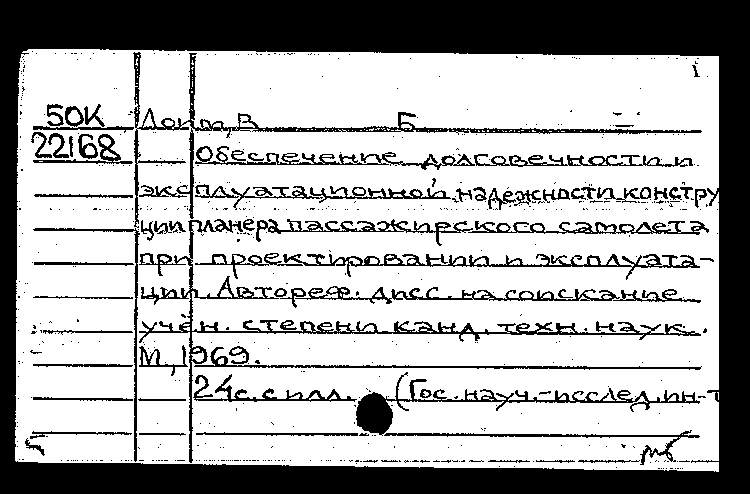 1
50К Лойм, В Б =
22168 Обеспечение долговечности и
эксплуатационной надежности констру
ции планера пассажирского самолета
при проектировании и эксплуата-
ции. Автореф. дисс. на соискание
учен. степени канд. техн. наук.
М., 1969.
24с. с илл. (Гос. науч.-исслед. ин-т